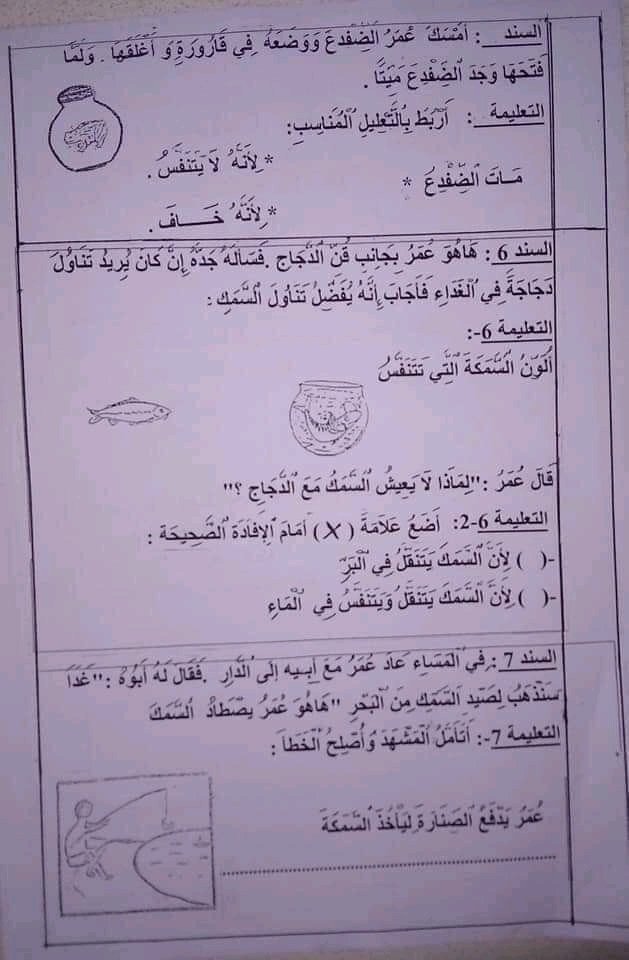 السند : أَمْسَكَ عُمَرُ الضِّفْدِعَ وَوَضَعَهُ فِي قَارُورَةٍ وَ أَغْلَقَهَا . وَلَمَّا
فَتَحَهَا وَجَدَ الضِّفْدِعَ مَيِّتًا .
التعليمة : أَرْبِطُ بِالتَّعْلِيلِ الْمُنَاسِبِ:
* لِأَنَّهُ لَا يَتَنَفَّسُ .
مَـاتَ الضِّفْدِعُ *
* لِأَنَّهُ خَــافَ .
السند 6 : هَاهُوَ عُمَرُ بِجَانِبِ قُنِّ الدَّجَاجِ .فَسَأَلَهُ جَدُّهُ إِنْ كَانَ يُرِيدُ تَنَاوُلَ
دَجَاجَةً فِي الْغَدَاءِ فَأَجَابَ إِنَّهُ يُفَضِّلُ تَنَاوُلَ السَّمَكِ :
التعليمة 6-:
أُلَوِّنُ السَّمَكَةَ الَّتِي تَتَنَفَّسُ
قَالَ عُمَرُ :"لِمَاذَا لَا يَعِيشُ السَّمَكُ مَعَ الدَّجَاجِ ؟"
التعليمة 6-2: أَضَعُ عَلَامَةَ ( X ) أَمَامَ الْإِفَادَةِ الصَّحِيحَةِ :
-( ) لِأَنَّ السَّمَكَ يَتَنَقَّلُ فِي الْبَرِّ
-( ) لِأَنَّ السَّمَكَ يَتَنَقَّلُ وَيَتَنَفَّسُ فِي الْمَاءِ
السند 7 : فِي الْمَسَاءِ عَادَ عُمَرُ مَعَ أَبِيهِ إِلَى الدَّارِ .فَقَالَ لَهُ أَبُوهُ :"غَدًا
سَنَذْهَبُ لِصَيْدِ السَّمَكِ مِنَ الْبَحْرِ "هَاهُوَ عُمَرُ يَصْطَادُ السَّمَكَ
التعليمة 7-: أَتَأَمَّلُ الْمَشْهَدَ وَأُصْلِحُ الْخَطَأَ :
عُمَرُ يَدْفَعُ الصَّنَارَةَ لِيَأْخُذَ السَّمَكَةَ